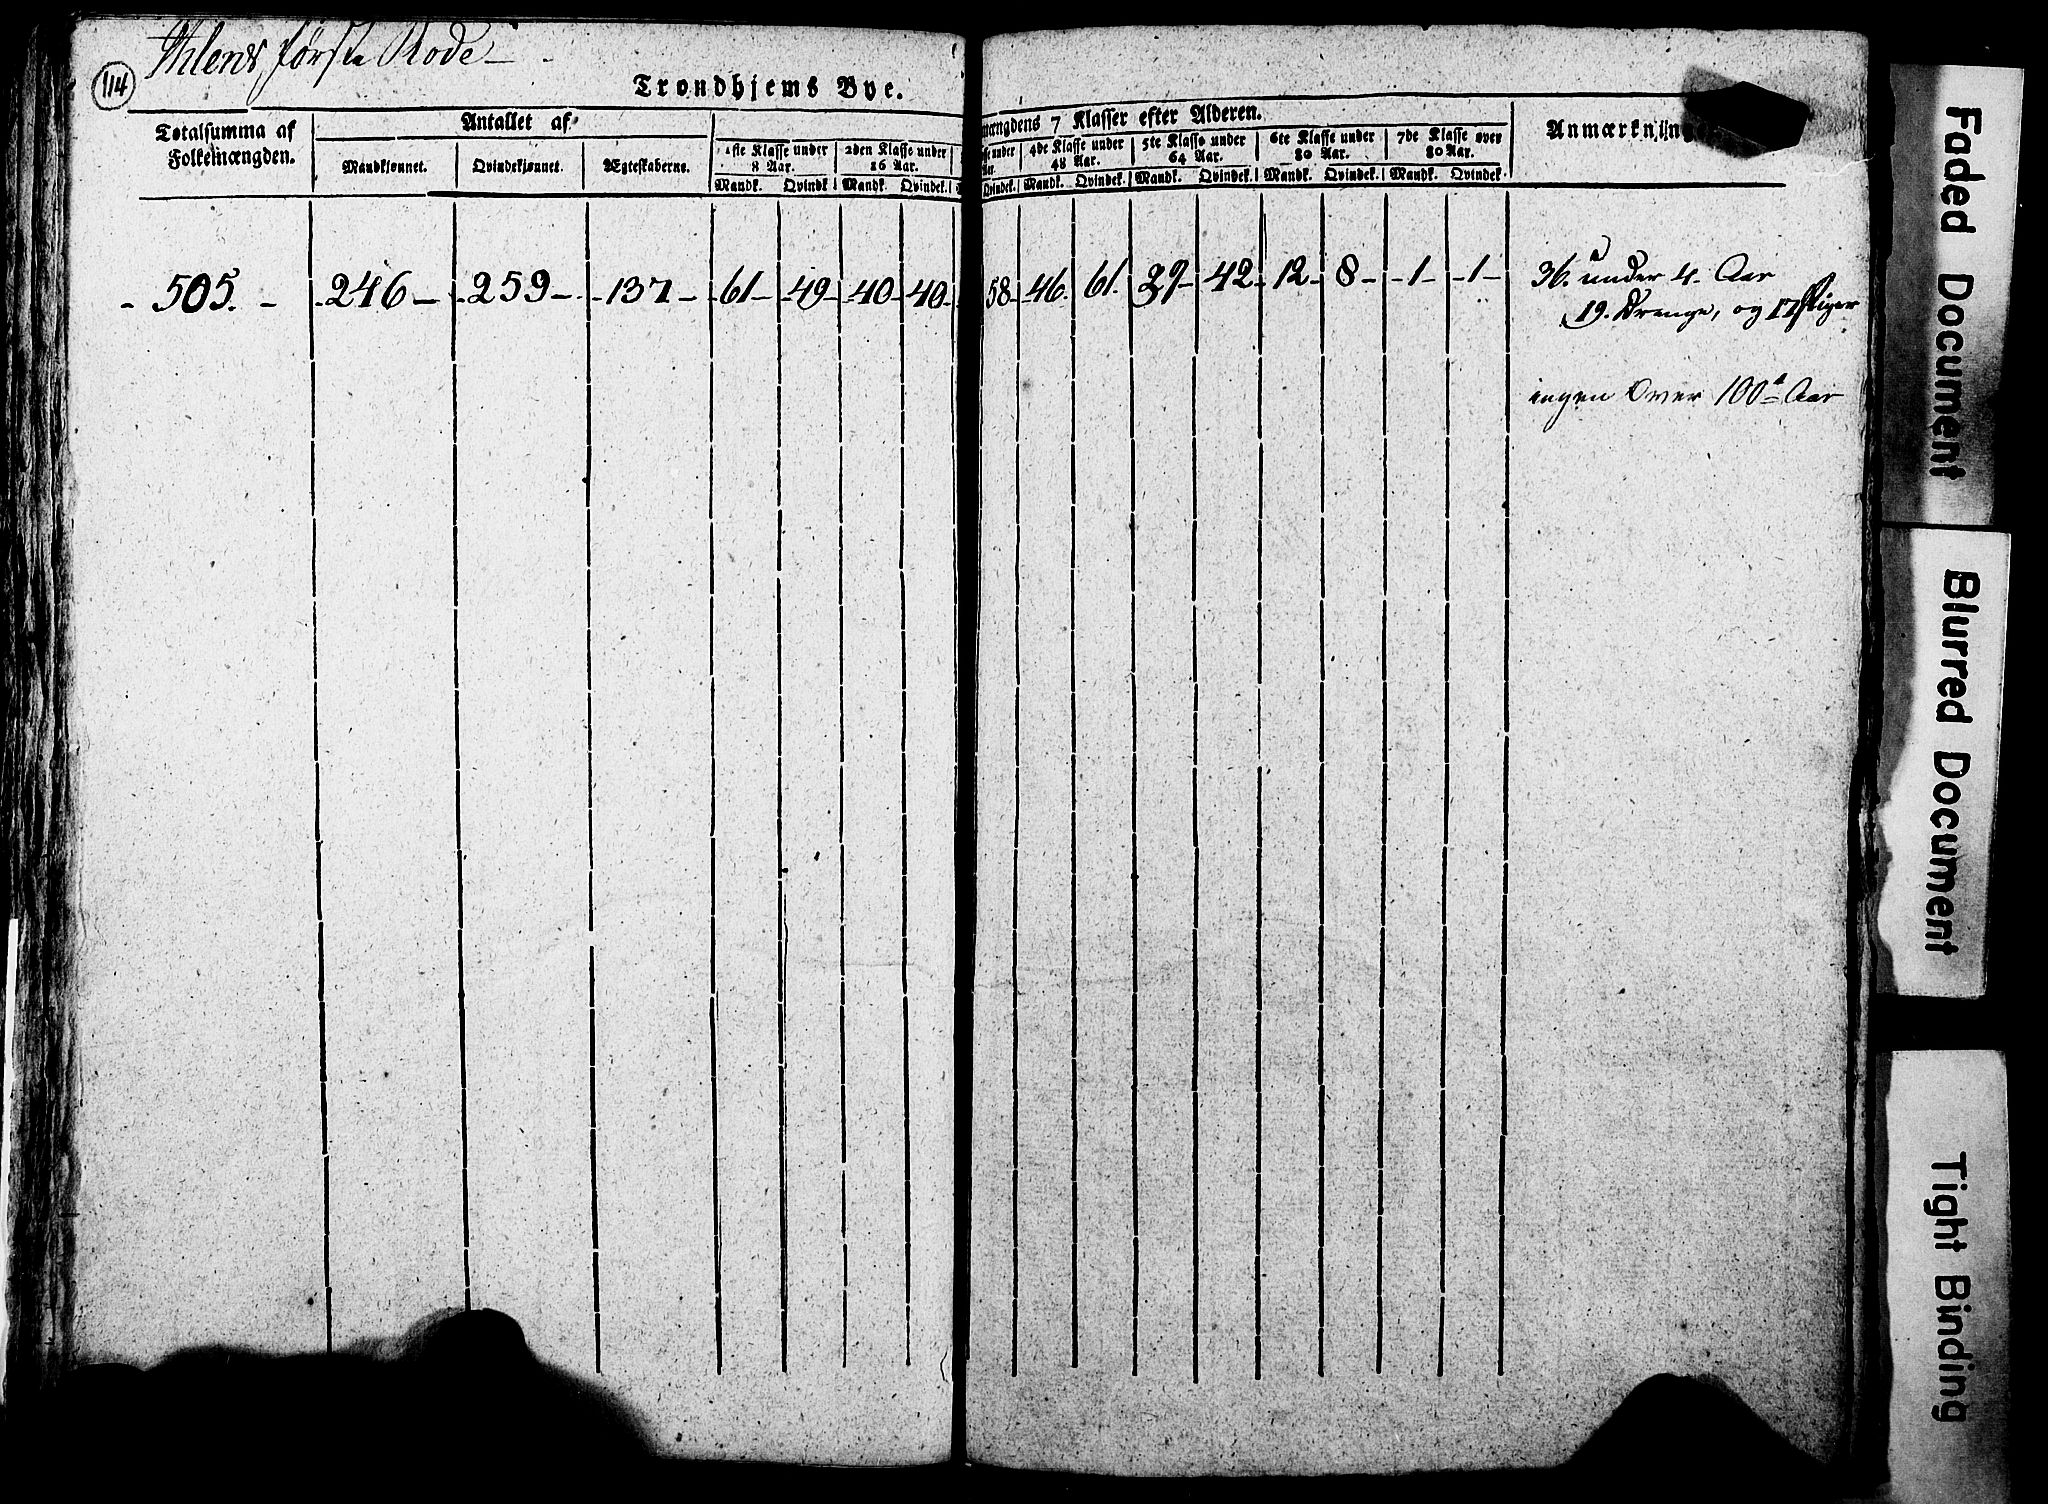 Ihlens første Rode
114
Trondhjems Bye.
Totalsumma af Folkemængden.
Antallet af
Mandkjønnet. Qvindekjønnet. Ægteskaberne.
mængdens 7 Klasser efter Alderen.
1ste Klasse under 8 Aar.
2den Klasse under 16 Aar.
sse under Aar.
4de Klasse under 48 Aar.
5te Klasse under 64 Aar.
6te Klasse under 80 Aar.
7de Klasse over 80 Aar.
Anmærknin
Mandk. Qvindek. Mandk. Qvindek.
Qvindek. Mandk. Qvindek. Mandk. Qvindek. Mandk. Qvindek. Mandk. Qvindek.
- 505. - - 246 - - 259 - - 137 - - 61 - - 49 - - 40 - 40 -
58 - 46. 61. 42 - 12 - 8 - - 1 - - 1 -
36. under 4. Aar
19. Drenge, og 17 Piger
ingen Over 100de Aar
Faded Document
Blurred Document
Tight Binding